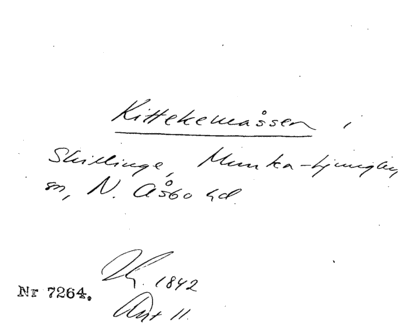 Kittekemåssen i
Skillinge, Munka-Ljungby
sn, N. Åsbo hd.
1842
Nr 7264.
Akt 11.